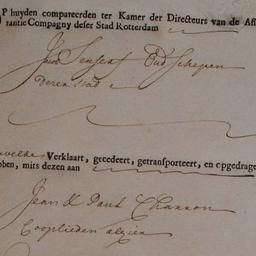 P huyden compareerden ter Kamer der Directeurs van de Ass
rantie Compagny deser Stad Rotterdam
Jan Sensert Oud Schepen
Deser stad
welke Verklaart, gecedeert, getransporteert, en opgedrage
bben, mits dezen aan
Jean & Paul Charron
Cooplieden alhier